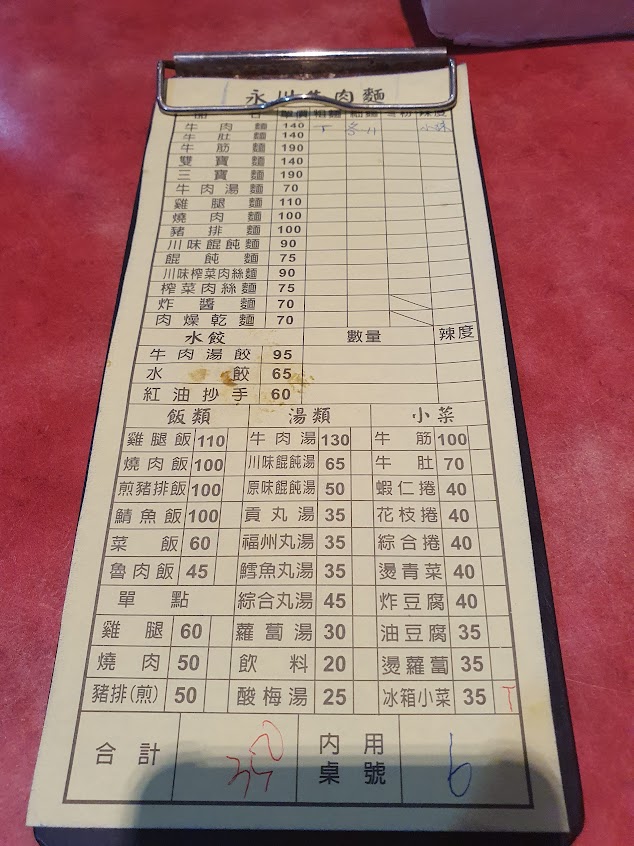 永川牛肉麵
品 名 單價 粗麵 細麵 冬粉 辣度
牛肉麵 140 T 小辣
牛肚麵 140
牛筋麵 190
雙寶麵 140
三寶麵 190
牛肉湯麵 70
雞腿麵 110
燒肉麵 100
豬排麵 100
川味餛飩麵 90
餛飩麵 75
川味榨菜肉絲麵 90
榨菜肉絲麵 75
炸醬麵 70
肉燥乾麵 70
水餃 數量 辣度
牛肉湯餃 95
水餃 65
紅油抄手 60
飯類 湯類 小菜
雞腿飯 110 牛肉湯 130 牛筋 100
燒肉飯 100 川味餛飩湯 65 牛肚 70
煎豬排飯 100 原味餛飩湯 50 蝦仁捲 40
鯖魚飯 100 貢丸湯 35 花枝捲 40
菜飯 60 福州丸湯 35 綜合捲 40
魯肉飯 45 鱈魚丸湯 35 燙青菜 40
單點 綜合丸湯 45 炸豆腐 40
雞腿 60 蘿蔔湯 30 油豆腐 35
燒肉 50 飲料 20 燙蘿蔔 35
豬排(煎) 50 酸梅湯 25 冰箱小菜 35 T
合計 內用桌號 6